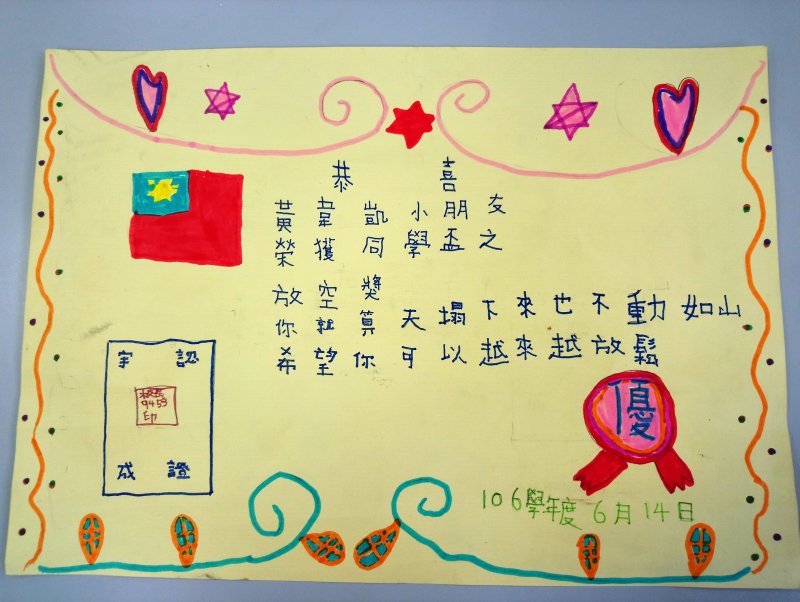 恭喜
黃韋凱小朋友
榮獲同學盃之
放空獎
你就算天塌下來也不動如山
希望你可以越來越放鬆
宇認
校長
9453
印
成證
優
106學年度6月14日